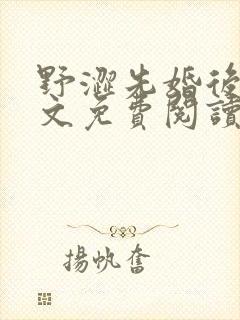 野澀先婚後
文免費閱讀
揚帆奮